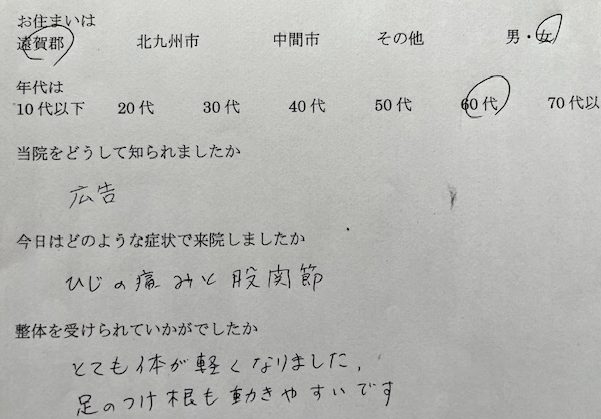 お住まいは
遠賀郡 北九州市 中間市 その他 男・女
年代は
10代以下 20代 30代 40代 50代 60代 70代以
当院をどうして知られましたか
広告
今日はどのような症状で来院しましたか
ひじの痛みと股関節
整体を受けられていかがでしたか
とても体が軽くなりました,
足のつけ根も動きやすいです